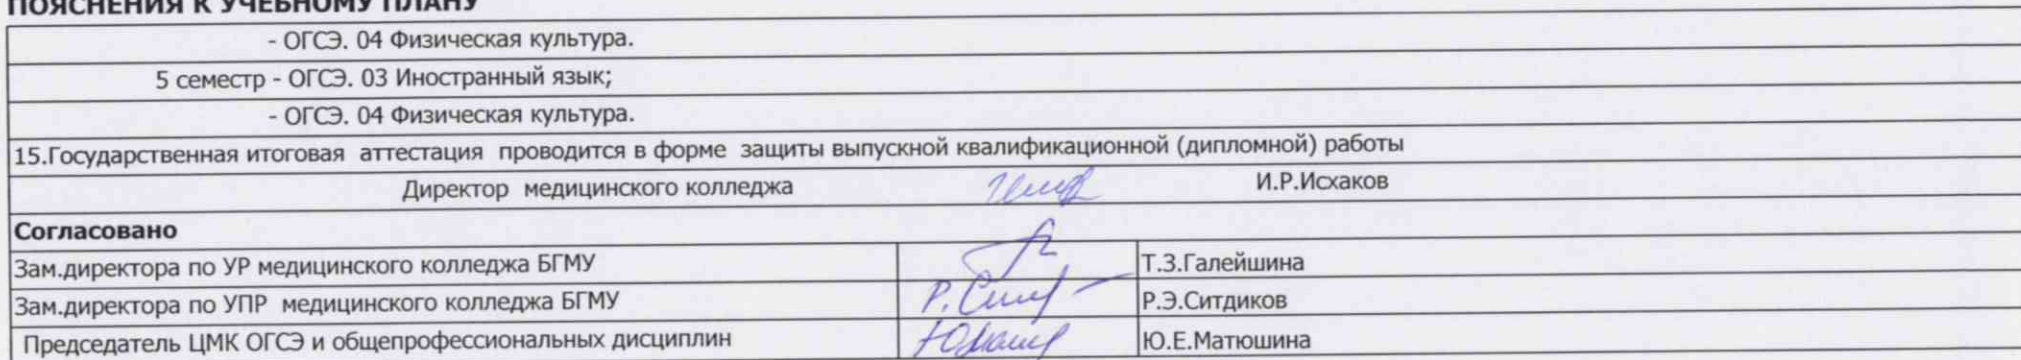 ПОЯСНЕНИЯ К УЧЕБНОМУ ПЛАНУ
- ОГСЭ. 04 Физическая культура.
5 семестр - ОГСЭ. 03 Иностранный язык;
- ОГСЭ. 04 Физическая культура.
15.Государственная итоговая аттестация проводится в форме защиты выпускной квалификационной (дипломной) работы
Директор медицинского колледжа И.Р.Исхаков
Согласовано
Зам.директора по УР медицинского колледжа БГМУ Т.З.Галейшина
Зам.директора по УПР медицинского колледжа БГМУ Р.Э.Ситдиков
Председатель ЦМК ОГСЭ и общепрофессиональных дисциплин Ю.Е.Матюшина